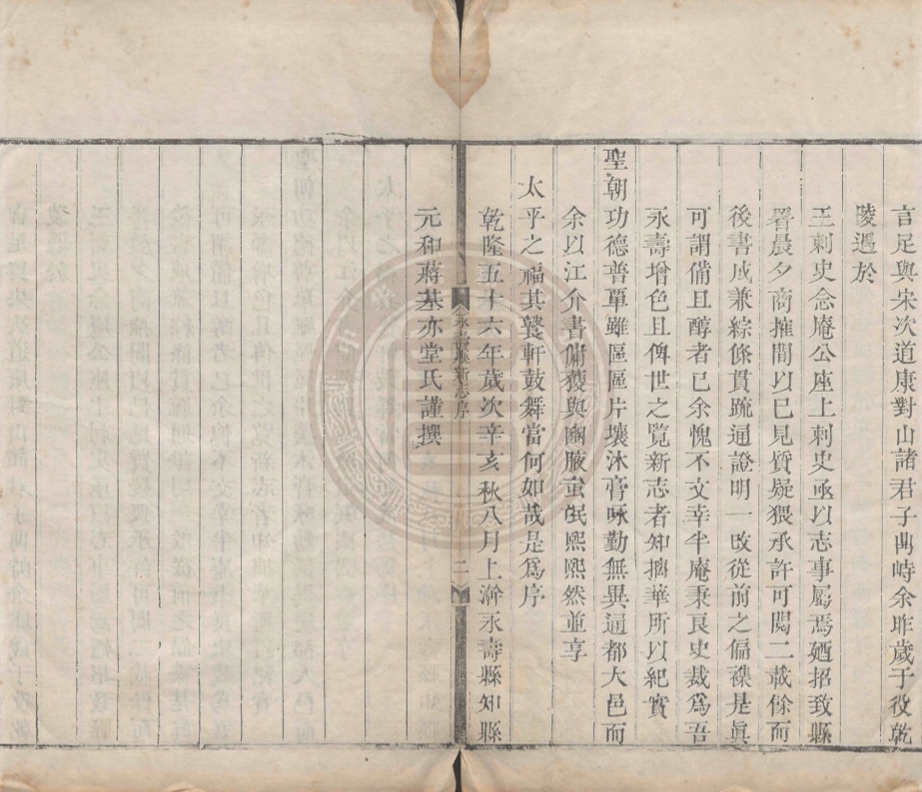 言足與宋次道康對山諸君子鼎峙余昨歲于役乾
陵遇於
王刺史念庵公座上刺史亟以志事屬焉廼招致縣
署晨夕商搉間以已見質疑猥承許可閱二載餘而
後書成兼綜條貫疏通證明一改從前之偏襍是眞
可謂備且醇者已余愧不文幸半庵秉良史裁爲吾
永壽增色且俾世之覽新志者知摛華所以紀實
聖朝功德普覃雖區區片壤沐膏咏勤無異通都大邑而
余以江介書傭獲與豳腴蚩氓熙熙然並享
太平之福其鼚軒鼓舞當何如哉是爲序
乾隆五十六年歲次辛亥秋八月上澣永壽縣知縣
永壽縣新志序
二
元和蔣基亦堂氏謹撰